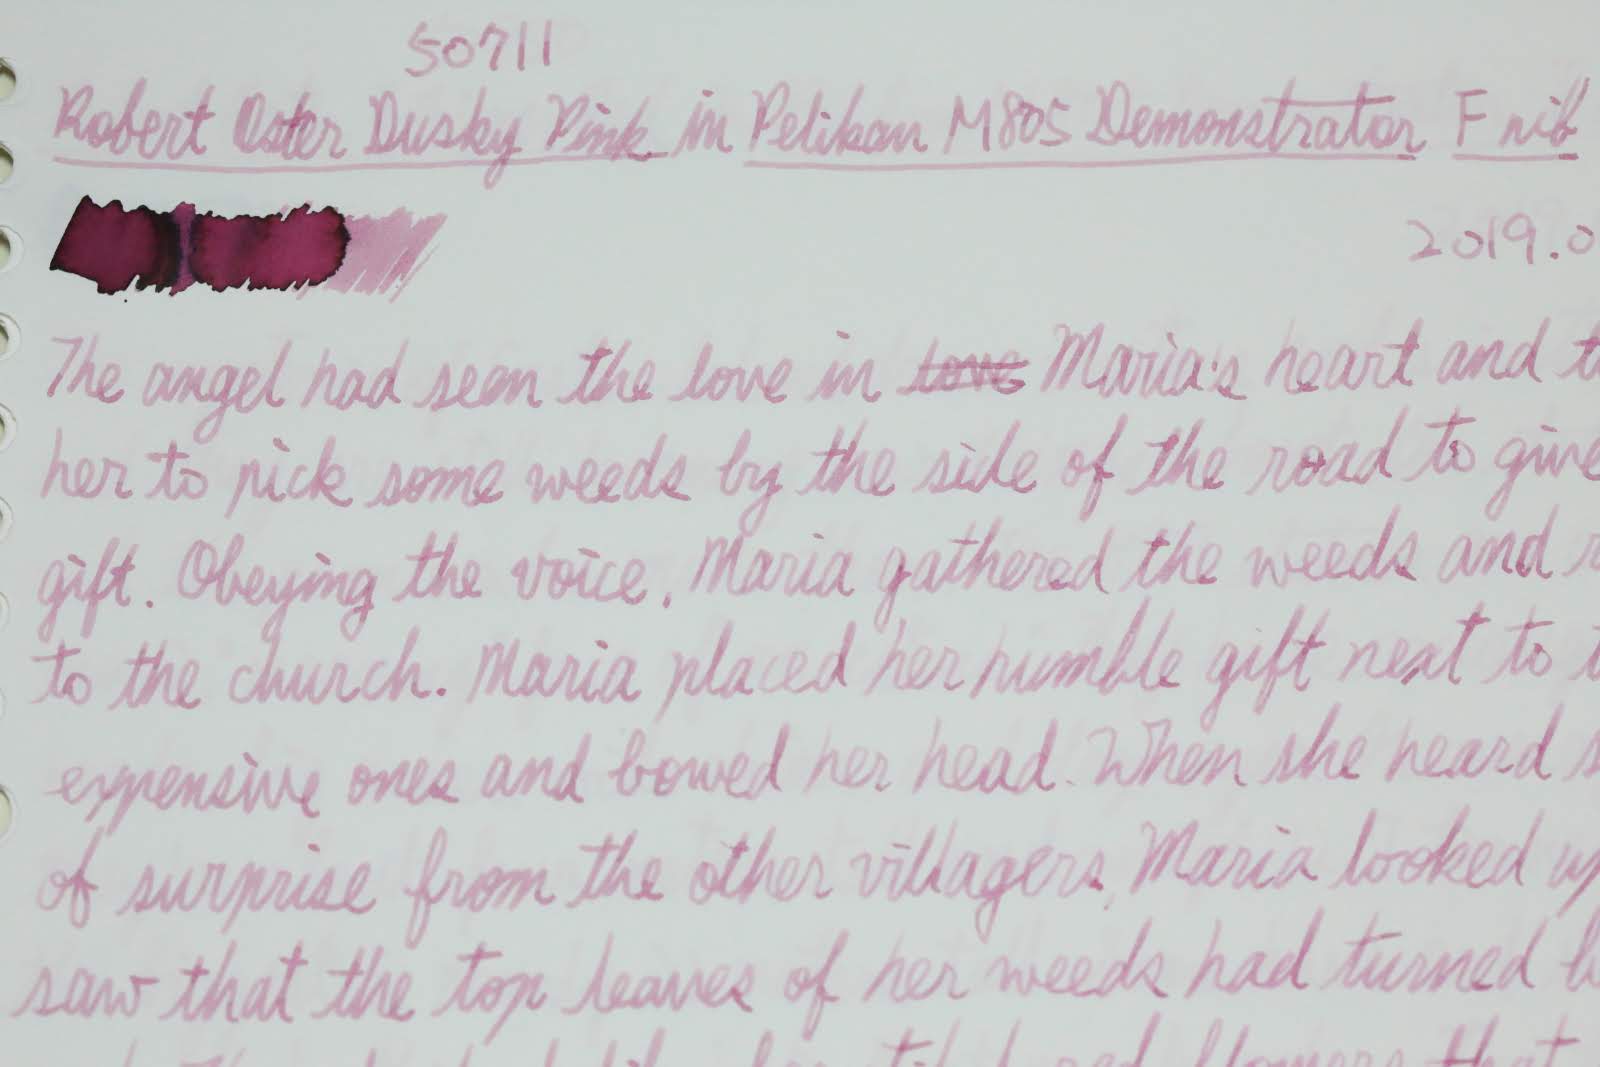 50711
Robert Oster Dusky Pink in Pelikan M805 Demonstrator F nib
2019.0
The angel had seen the love in love Maria's heart and t
her to pick some weeds by the side of the road to give
gift. Obeying the voice, Maria gathered the weeds and r
to the church. Maria placed her humble gift next to t
expensive ones and bowed her head. When she heard s
of surprise from the other villagers, Maria looked up
saw that the top leaves of her weeds had turned b
red flowers that